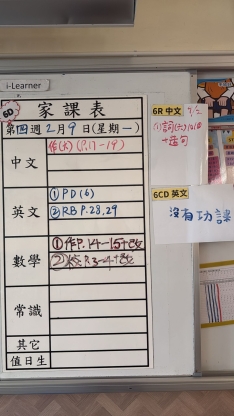 i-Learner
6D
家課表
第四週2月9日(星期一)
中文
作(六)(P.17-19)
英文
① PD(6)
② RB P.28,29
數學
① 作P.14-15+改
常識
其它
值日生
6R 中文
6CD 英文
沒有功課